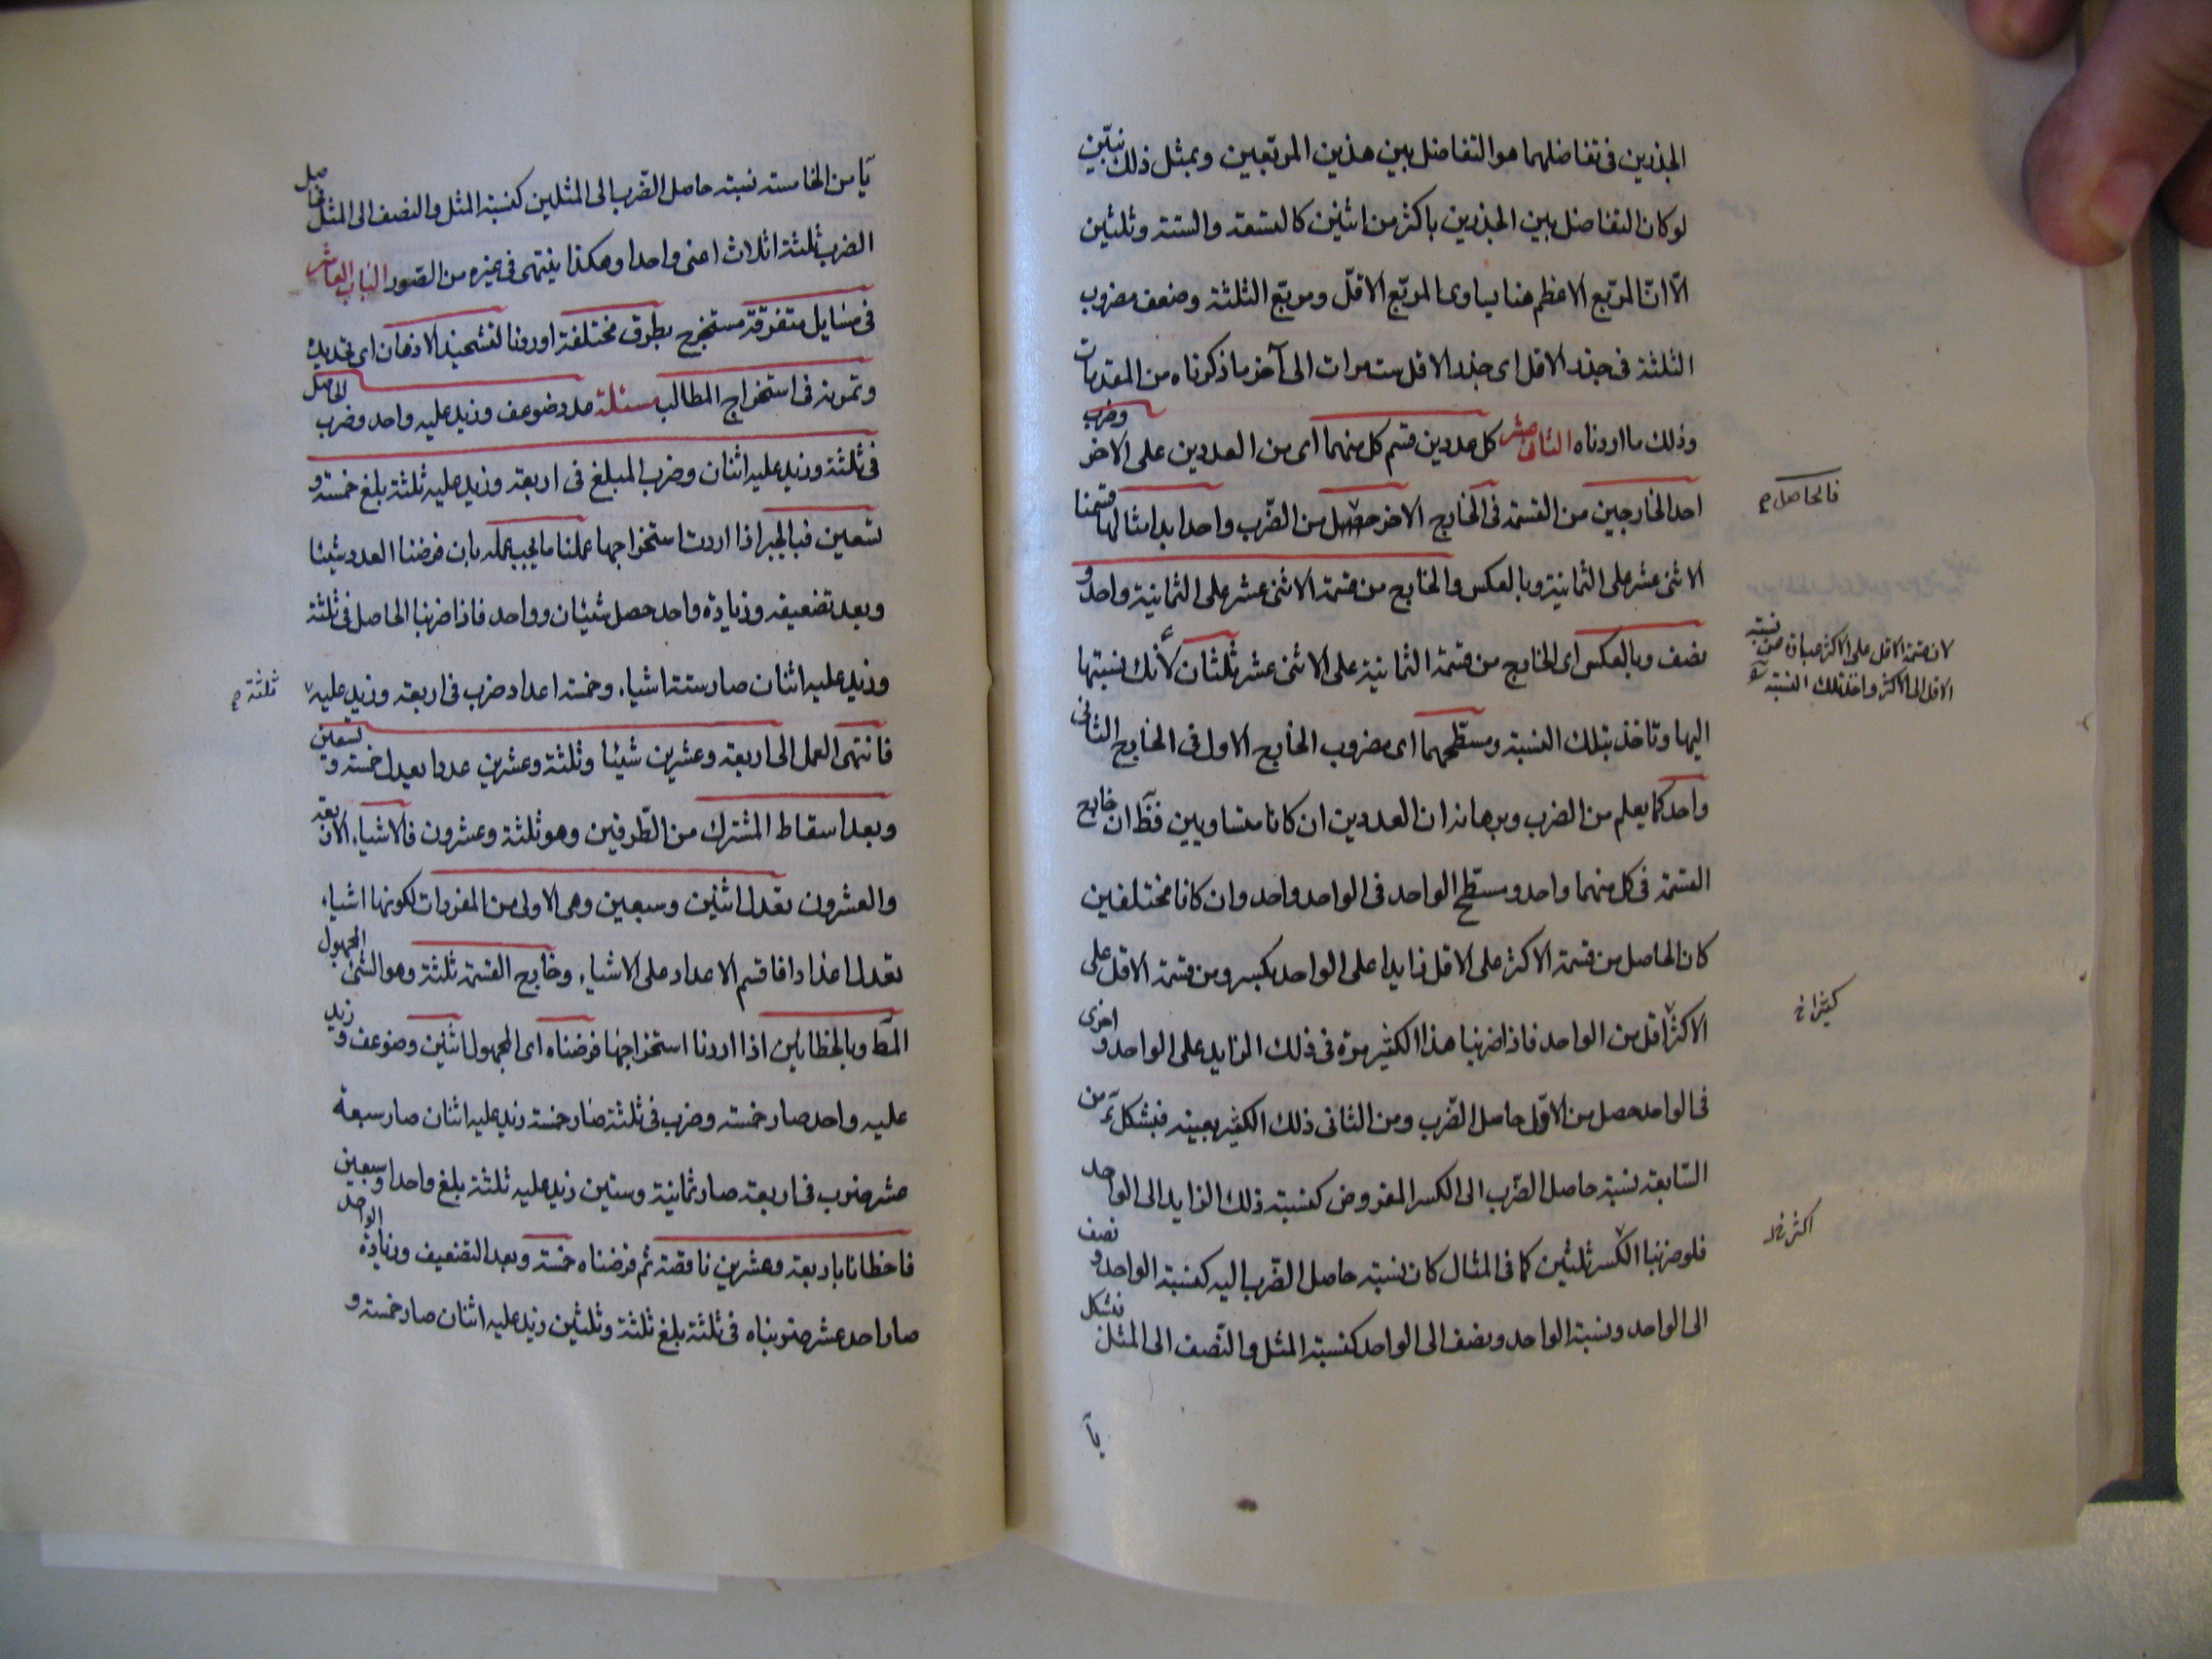 الجذرين فى تفاضلهما هو التفاضل بين هذين المربعين وبمثل ذلك نبيّن
لو كان التفاضل بين الجذرين باكثر من اثنين كالتسعة والستة وثلثين
الّا انّ المربّع الاعظم هنا يساوى المربّع الاقلّ ومربّع الثلثة وضعف مضروب
الثلثة فى جذر الاقل اى جذر الاقل ست مرات الى آخر ما ذكرناه من المقدمات
وذلك ما اردناه الثانى عشر كل عددين قسم كل منهما اى من العددين على الاخر وضرب
احد الخارجين من القسمة فى الخارج الاخر حصل من الضّرب واحد ابدا مثالهما قسمنا
فالحاصل
الاثنى عشر على الثمانية وبالعكس والخارج من قسمة الاثنى عشر على الثمانية واحد و
نصف وبالعكس اى الخارج من قسمة الثمانية على الاثنى عشر ثلثان لأنك نسبتها
لان قسمة الاقل على الاكثر عبارة عن نسبة
الاقل الى الاكثر واخذ تلك النسبة
اليها وتاخذ بتلك النسبة ومسطّحهما اى مضروب الخارج الاول فى الخارج الثانى
واحد كما يعلم من الضرب وبرهانه ان العددين ان كانا متساويين فظ ان خارج
القسمة فى كل منهما واحد ومسطّح الواحد فى الواحد واحد وان كانا مختلفين
كان الحاصل من قسمة الاكثر على الاقل زايدا على الواحد بكسر ومن قسمة الاقل على
الاكثر اقل من الواحد فاذا ضربنا هذا الكثير مرة فى ذلك الزايد على الواحد و اخرى
فى الواحد حصل من الاوّل حاصل الضّرب ومن الثانى ذلك الكثير بعينه فبشكل من
السّابعة نسبة حاصل الضّرب الى الكسر المفروض كنسبة ذلك الزايد الى الواحد
فلو ضربنا الكسر ثلثين كما فى المثال كان نسبة حاصل الضّرب اليه كنسبة الواحد و نصف
الى الواحد ونسبة الواحد ونصف الى الواحد كنسبة المثل والنّصف الى المثل فبشكل
يآ
يآ من الخامسة نسبة حاصل الضّرب الى المثلين كنسبة المثل والنصف الى المثل فحاصل
الضرب ثلثة اثلاث اعنى واحدا وهكذا ينتهى فى غيره من الصّور الباب العاشر
فى مسايل متفرّقة مستخرج بطرق مختلفة اوردنا لتشحيذ الاذهان اى تحديده
وتمرنه فى استخراج المطالب مسئلة عدد ضوعف وزيد عليه واحد وضرب الحاصل
فى ثلثة وزيد عليه اثنان وضرب المبلغ فى اربعة وزيد عليه ثلثة بلغ خمسة و
تسعين فبالجبر اذا اردت استخراجها عملنا ما يجب عمله بان فرضنا العدد شيئا
وبعد تضعيفه وزيادة واحد حصل شيئان وواحد فاذا ضربنا الحاصل فى ثلثة
وزيد عليه اثنان صار ستة اشياء وخمسة اعداد ضرب فى اربعة وزيد عليه
ثلثة
فانتهى العمل الى اربعة وعشرين شيئا وثلثة وعشرين عددا يعدل خمسة و تسعين
وبعد اسقاط المشترك من الطّرفين وهو ثلثة وعشرون فالاشياء الاربعة
والعشرون يعدل اثنين وسبعين وهى الاولى من المفردات لكونها اشياء
يعدل اعدادا فاقسم الاعداد على الاشياء وخارج القسمة ثلثة وهو الشئ المجهول
المط وبالخطائين اذا اردنا استخراجها فرضناه اى المجهول اثنين وضوعف و زيد
عليه واحد صار خمسة وضرب فى ثلثة صار خمسة زيد عليه اثنان صار سبعة
عشر ضرب فى اربعة صار ثمانية وستين زيد عليه ثلثة بلغ واحدا وسبعين
فاخطانا باربعة وعشرين ناقصة ثم فرضناه خمسة وبعد التضعيف وزيادة الواحد
صار احد عشر ضربناه فى ثلثة بلغ ثلثة وثلثين زيد عليه اثنان صار خمسة و